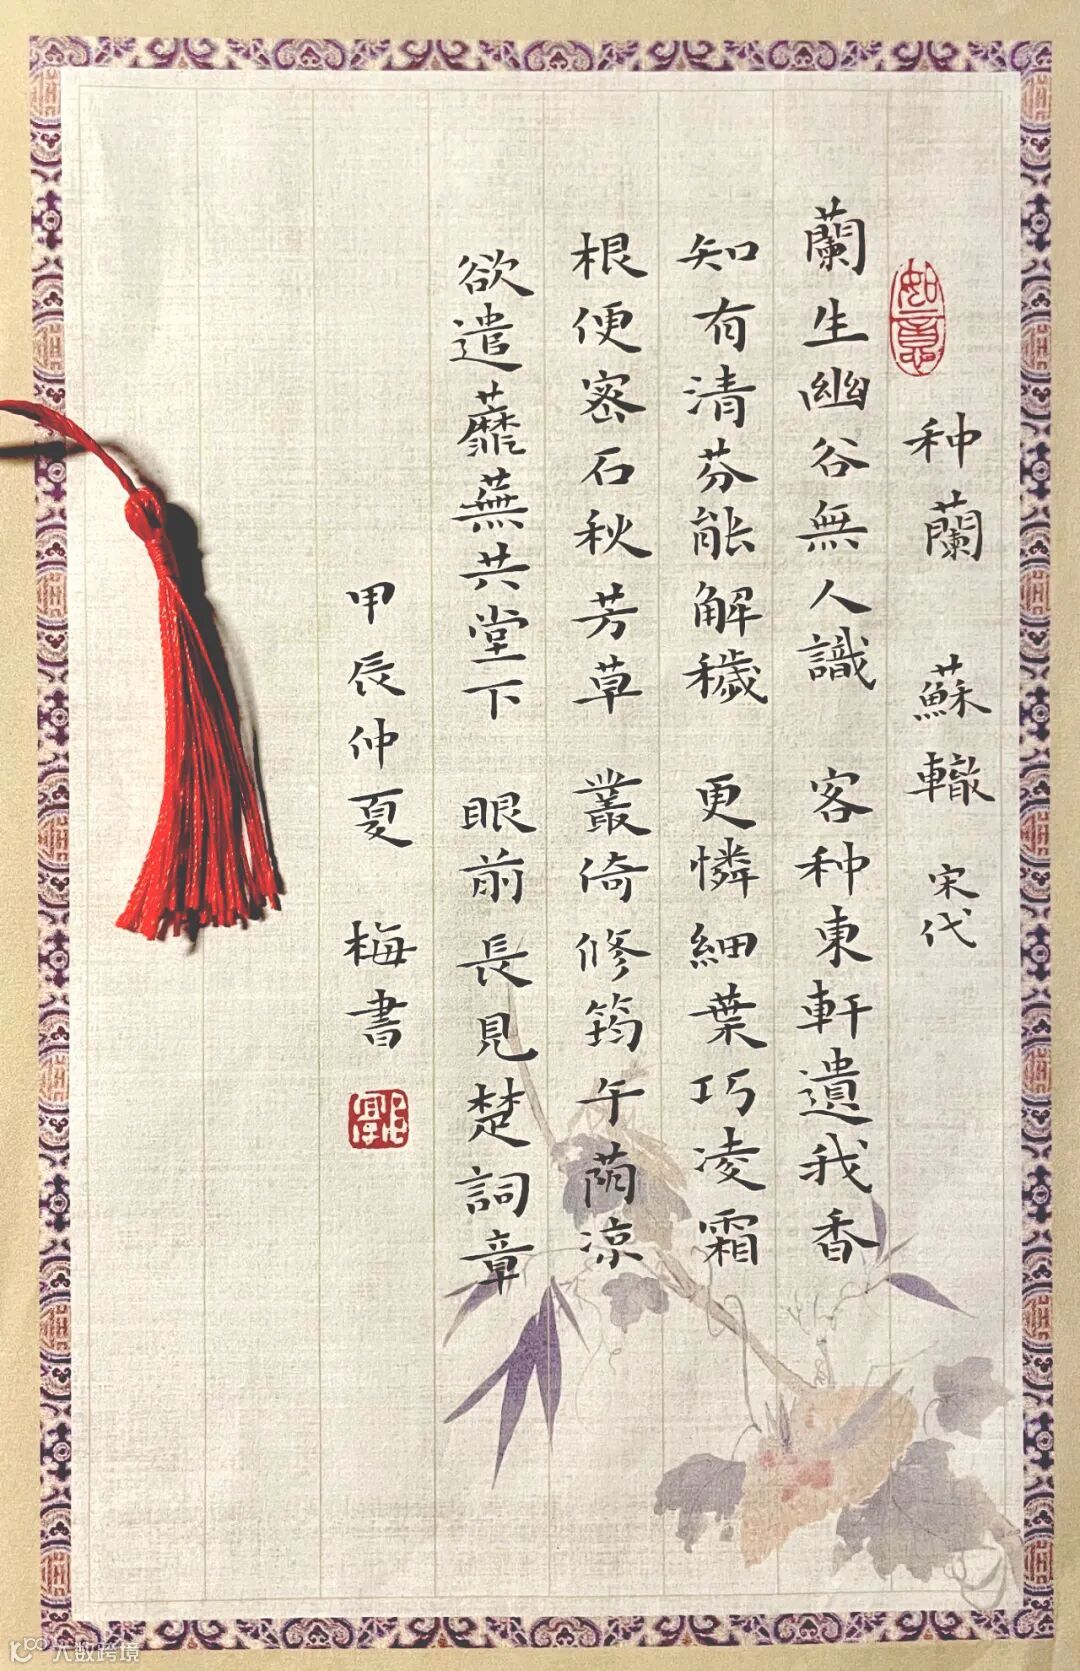 如意
种蘭 蘇轍 宋代
蘭生幽谷無人識 客种東軒遺我香
知有清芬能解穢 更憐細葉巧凌霜
根便密石秋芳草 叢倚修筠午蔭涼
欲遣蘼蕪共堂下 眼前長見楚詞章
甲辰仲夏 梅書
大数跨境